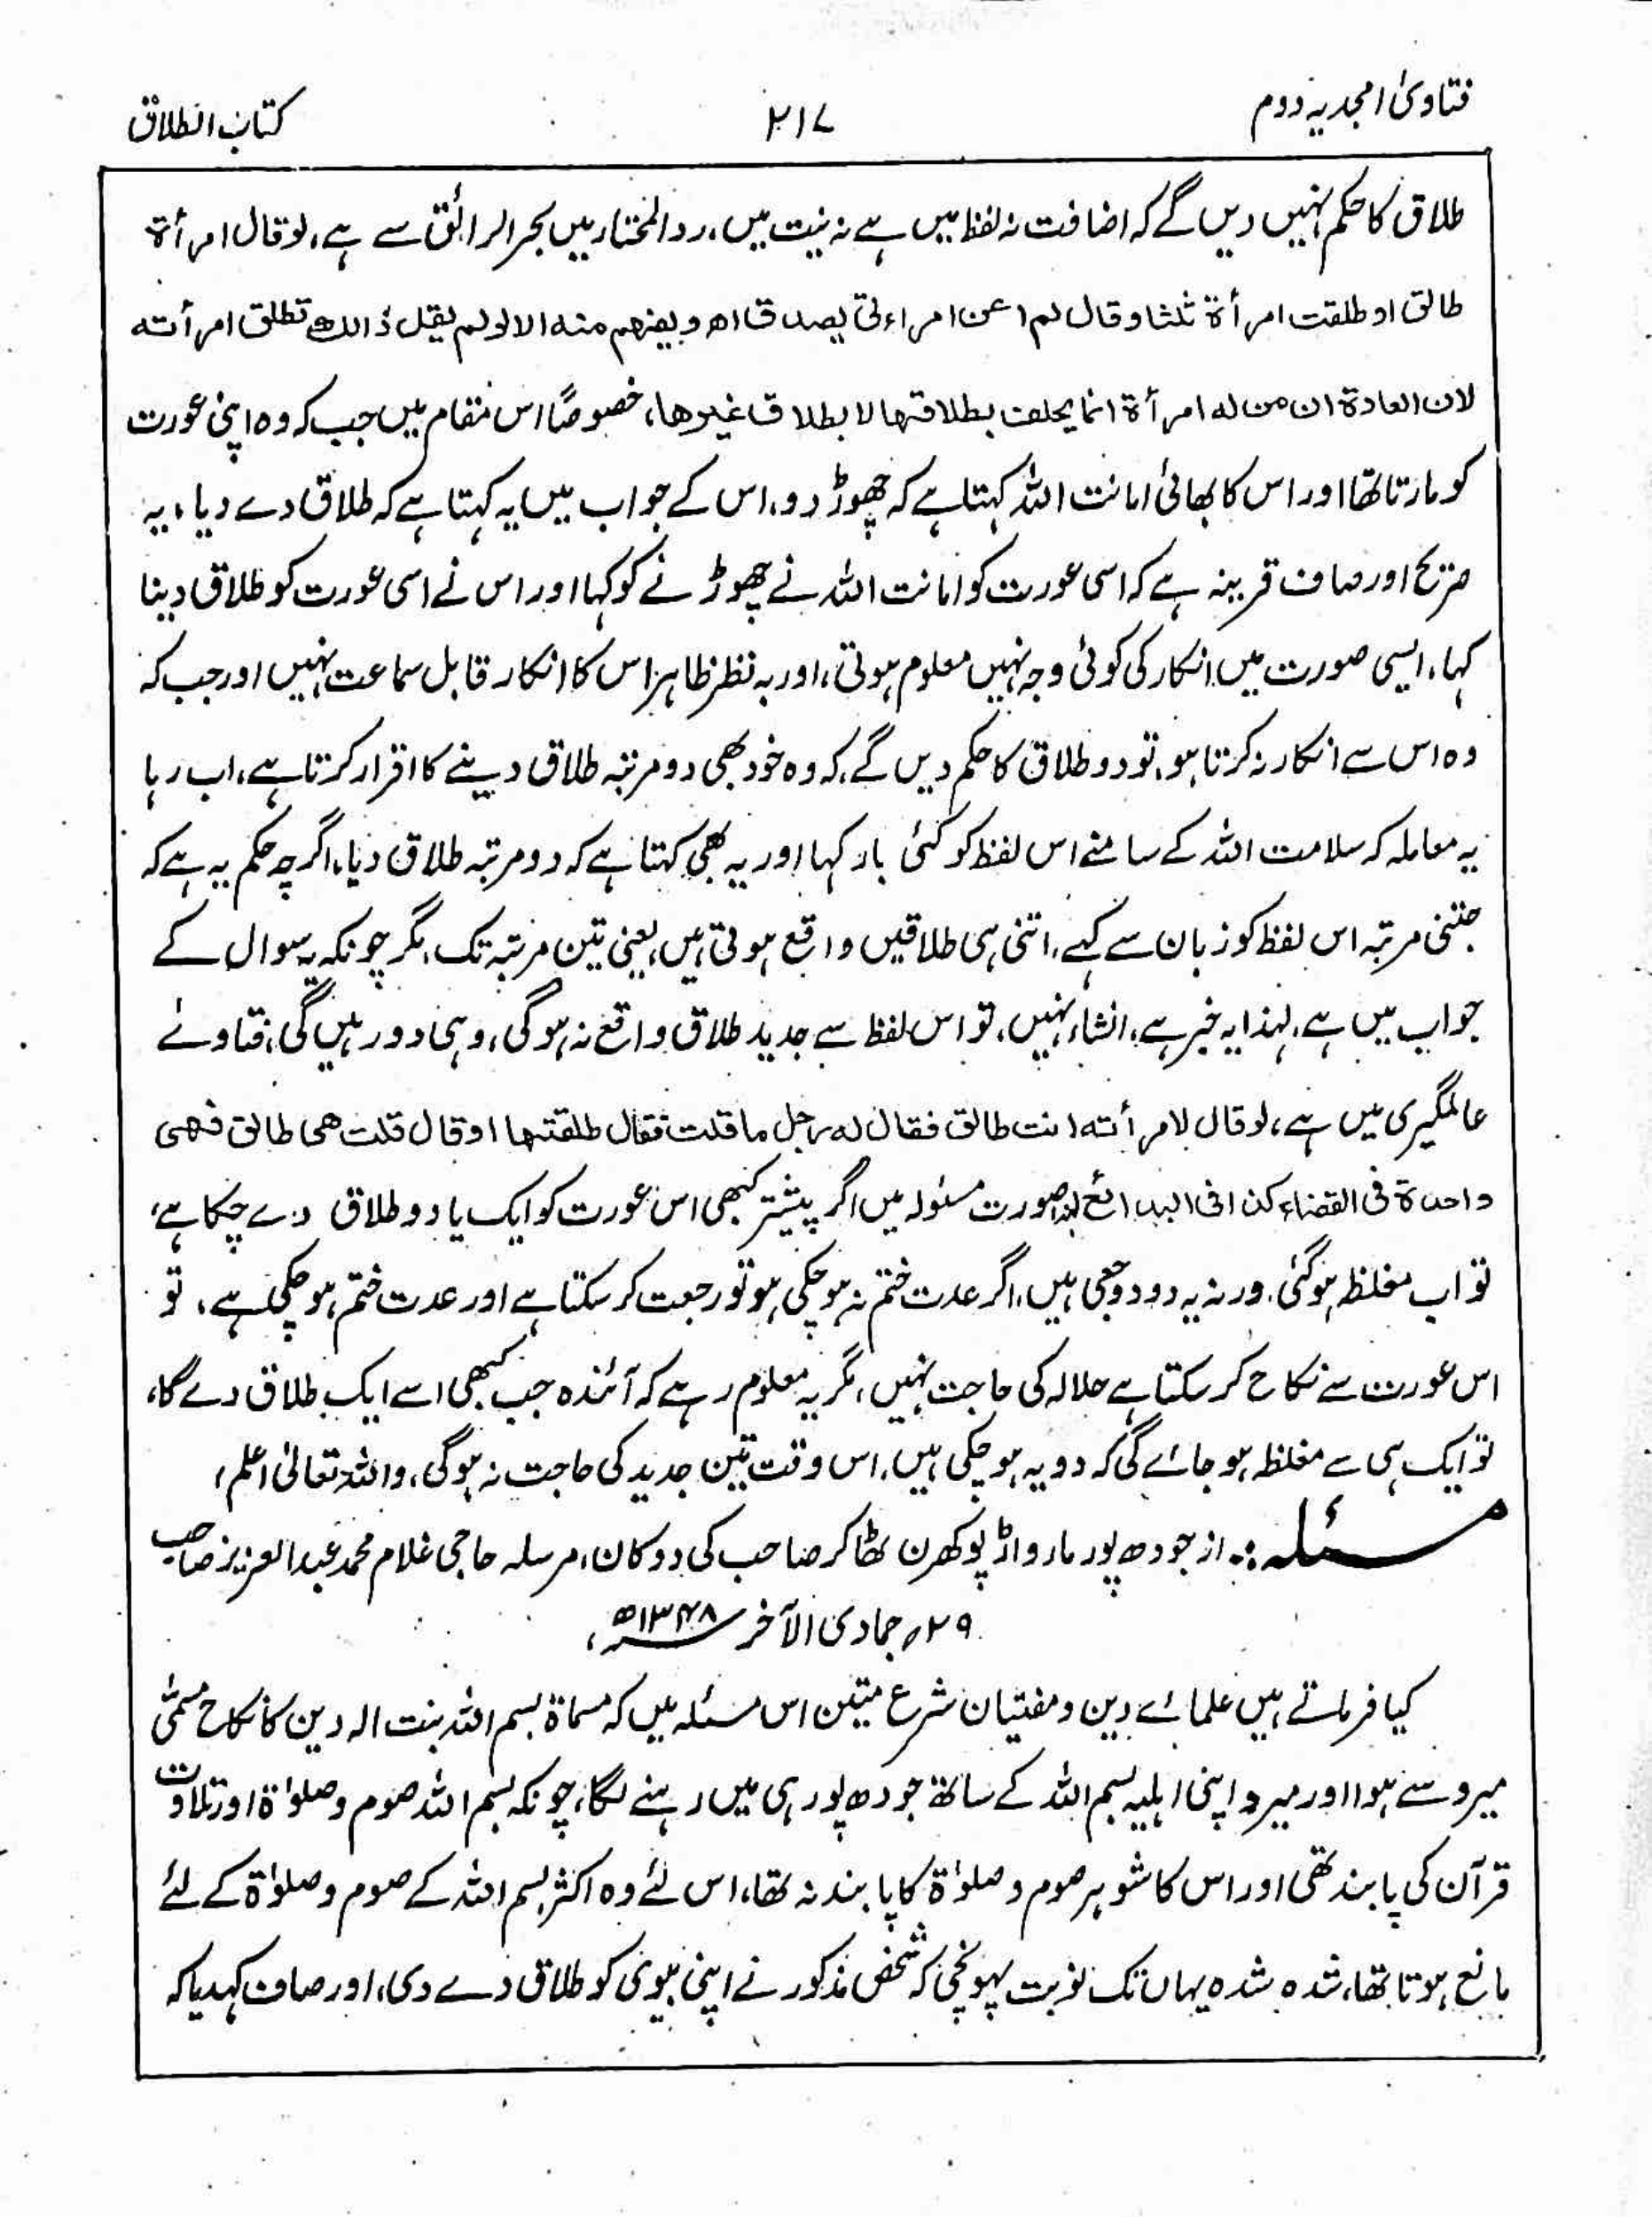 فتاویٰ امجدیہ دوم
۲۱۷
کتاب الطلاق
طلاق کا حکم نہیں دیں گے کہ اضافت نہ لفظ میں ہے نہ نیت میں، رد المختار میں بحر الرائق سے ہے، لو قال امرأة
طالق او طلقت امرأة ثلثا وقال لم اعن امراءتی یصدق اھ و یفہم منہ الا لو لم یقل ذالك تطلق امرأتہ
لان العادة ان من لہ امرأة انما یحلف بطلاقہا لا بطلاق غیرھا، خصوصًا اس مقام میں جب کہ وہ اپنی عورت
کو مارتا تھا اور اس کا بھائی امانت اللہ کہتا ہے کہ چھوڑ دو، اس کے جواب میں یہ کہتا ہے کہ طلاق دے دیا، یہ
صریح اور صاف قرینہ ہے کہ اسی عورت کو امانت اللہ نے چھوڑ نے کو کہا اور اس نے اسی عورت کو طلاق دینا
کہا، ایسی صورت میں انکار کی کوئی وجہ نہیں معلوم ہوتی، اور بہ نظر ظاہر اس کا انکار قابل سماعت نہیں اور جب کہ
وہ اس سے انکار نہ کرتا ہو، تو دو طلاق کا حکم دیں گے، کہ وہ خود بھی دو مرتبہ طلاق دینے کا اقرار کرتا ہے، اب رہا
یہ معاملہ کہ سلامت اللہ کے سامنے اس لفظ کو کئی بار کہا اور یہ بھی کہتا ہے کہ دو مرتبہ طلاق دیا، اگرچہ حکم یہ ہے کہ
جتنی مرتبہ اس لفظ کو زبان سے کہے، اتنی ہی طلاقیں واقع ہوتی ہیں، یعنی تین مرتبہ تک، مگر چونکہ یہ سوال کے
جواب میں ہے، لہذا یہ خبر ہے، انشاء نہیں، تو اس لفظ سے جدید طلاق واقع نہ ہوگی، وہی دو رہیں گی، فتاوے
عالمگیری میں ہے، لو قال لامرأتہ انت طالق فقال لہ رجل ما قلت فقال طلقتہا او قال قلت ھی طالق فھی
واحدة فی القضاء کذا فی البدائع لہذا صورت مسئولہ میں اگر پیشتر کبھی اس عورت کو ایک یا دو طلاق دے چکا ہے،
تو اب مغلظہ ہوگئی، ورنہ یہ دو دوجعی ہیں، اگر عدت ختم نہ ہو چکی ہو تو رجعت کر سکتا ہے اور عدت ختم ہو چکی ہے، تو
اس عورت سے نکاح کر سکتا ہے حلالہ کی حاجت نہیں، مگر یہ معلوم رہے کہ آئندہ جب کبھی اسے ایک طلاق دے گا،
تو ایک ہی سے مغلظہ ہو جائے گی کہ دو یہ ہو چکی ہیں، اس وقت تین جدید کی حاجت نہ ہوگی، واللہ تعالیٰ اعلم،
مسئلہ :۔ از جودھ پور مارواڑ پوکھرن ٹھاکر صاحب کی دوکان، مرسلہ حاجی غلام محمد عبد العزیز صاحب
۲۹؍ جمادی الآخر ۱۳۴۸ھ،
کیا فرماتے ہیں علمائے دین ومفتیان شرع متین اس مسئلہ میں کہ مسماة بسم اللہ بنت الہ دین کا نکاح مسمّٰی
میرو سے ہوا اور میرو اپنی اہلیہ بسم اللہ کے ساتھ جودھ پور ہی میں رہنے لگا، چونکہ بسم اللہ صوم وصلوٰة اور تلاوت
قرآن کی پابند تھی اور اس کا شوہر صوم و صلوٰة کا پابند نہ تھا، اس لئے وہ اکثر بسم اللہ کے صوم وصلوٰة کے لئے
مانع ہوتا تھا، شدہ شدہ یہاں تک نوبت پہونچی کہ شخص مذکور نے اپنی بیوی کو طلاق دے دی، اور صاف کہدیا کہ